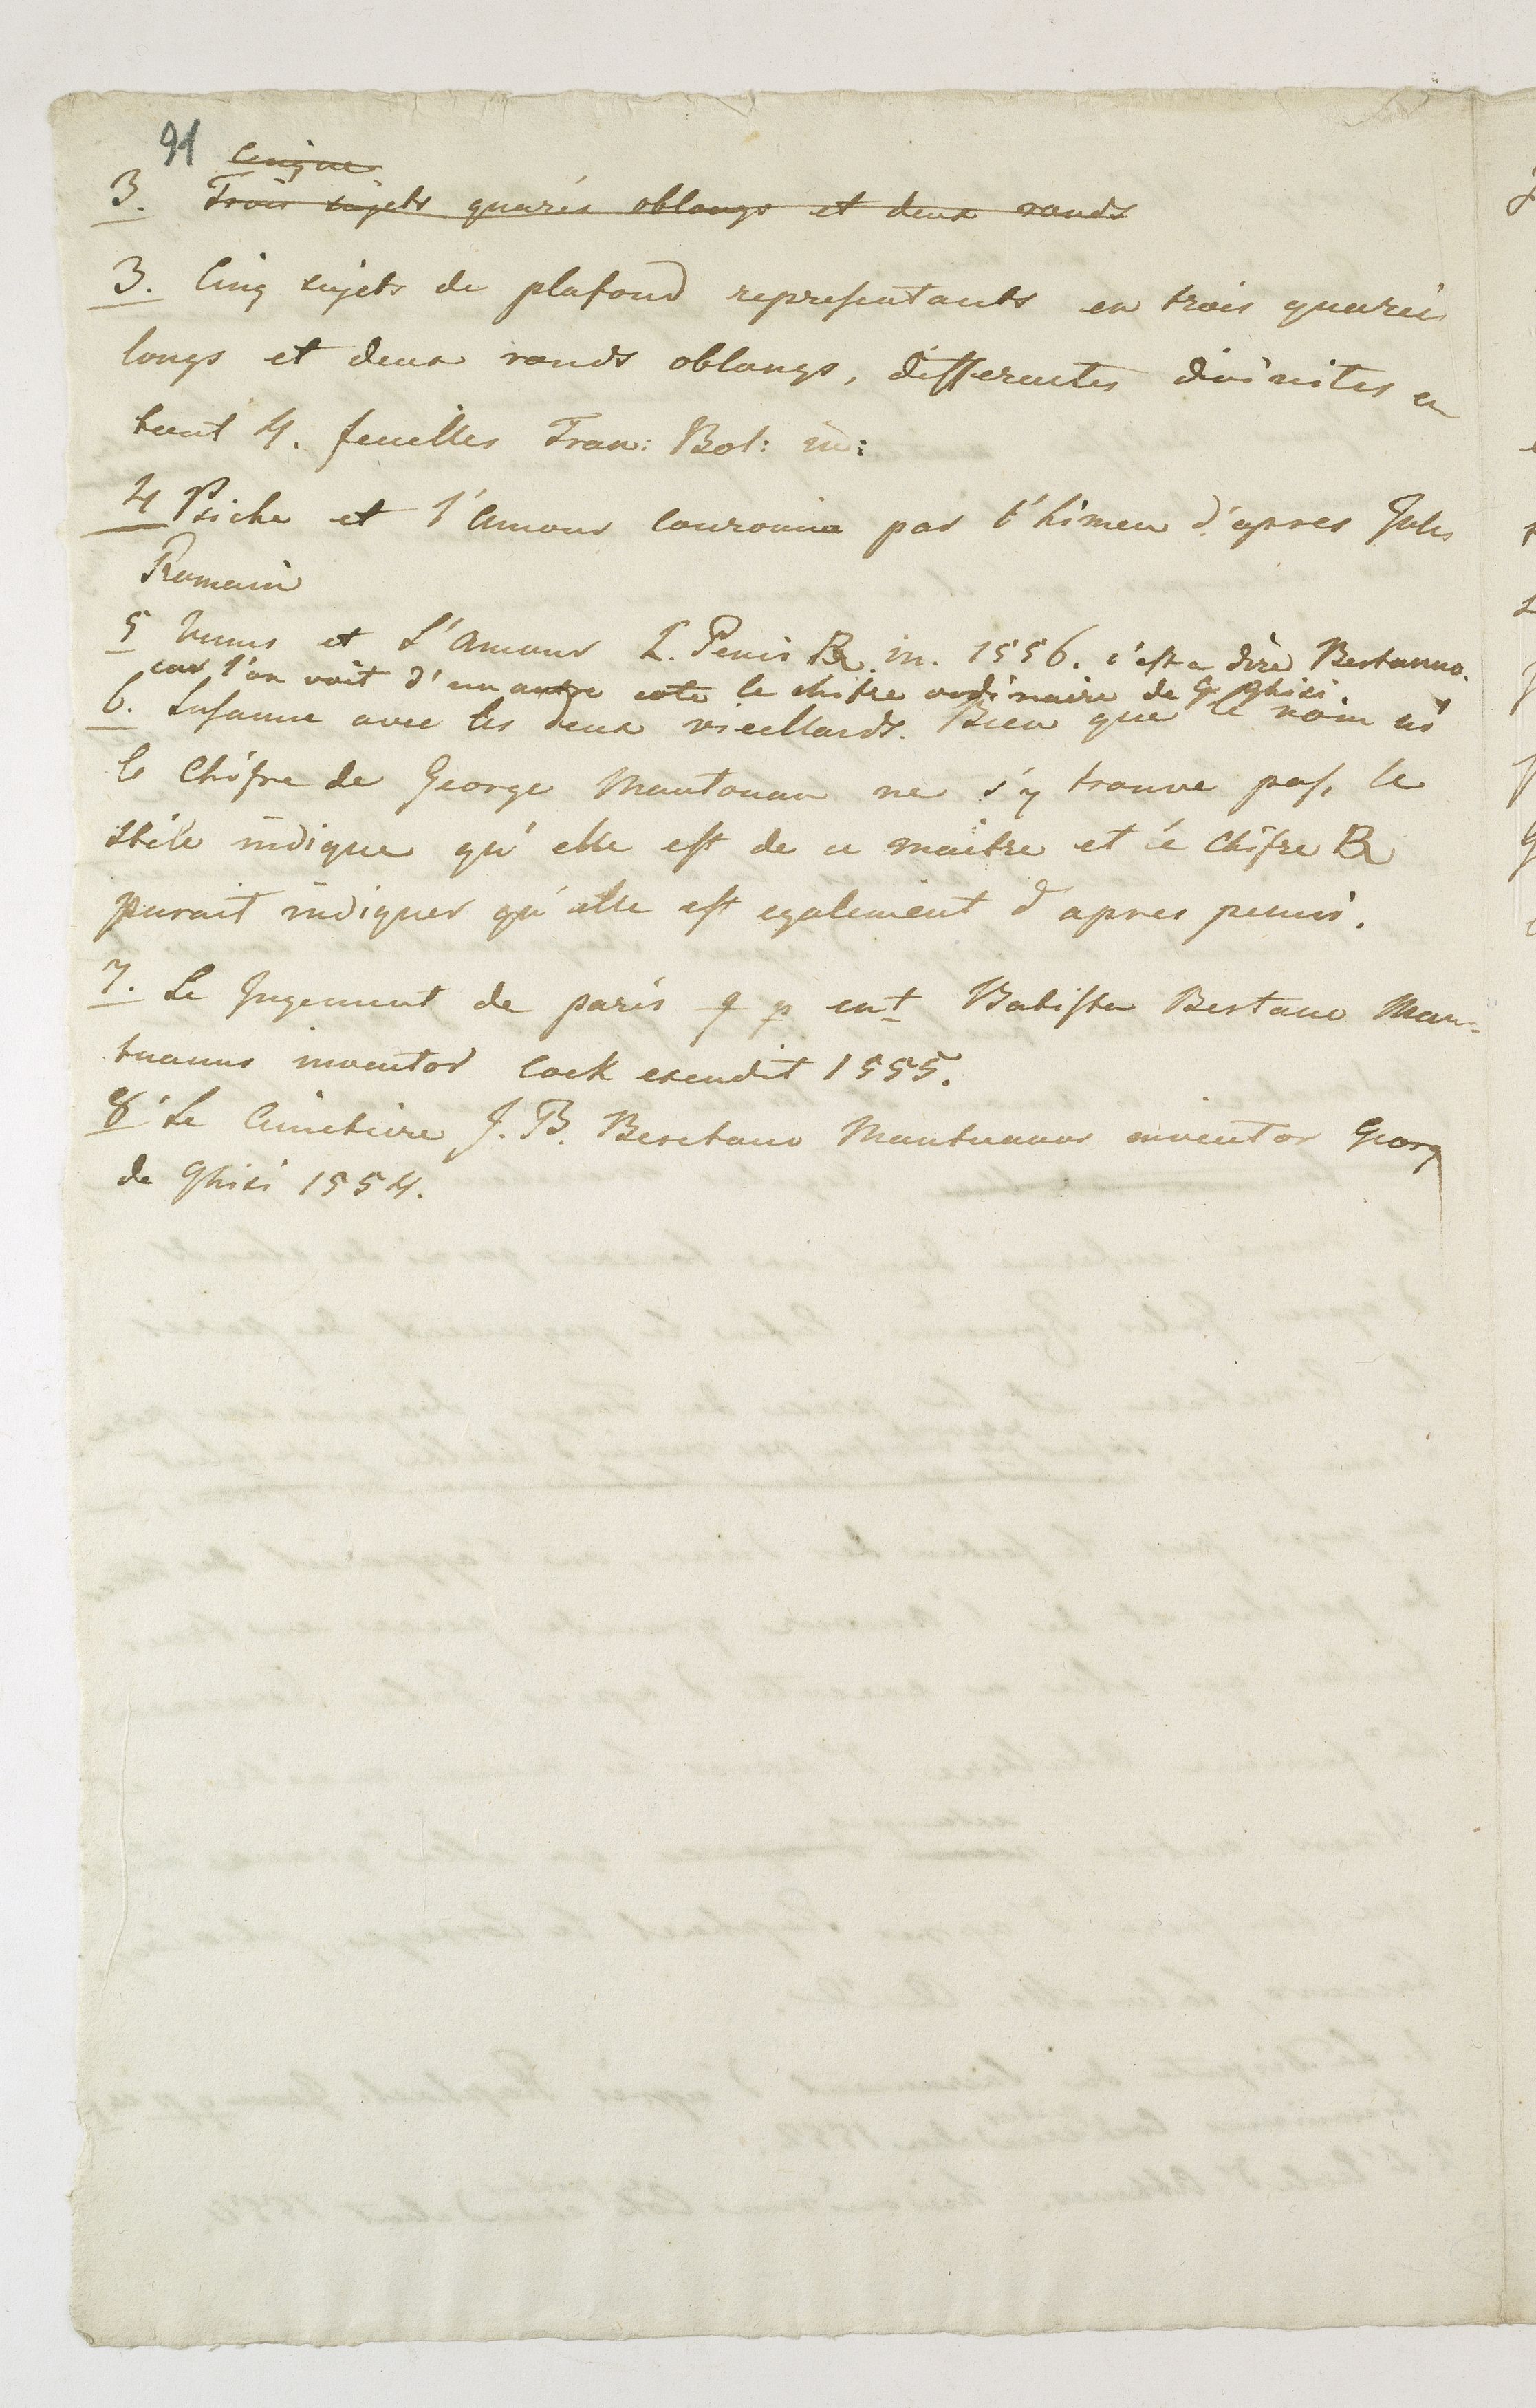 91
Cinque
3. Trois sujets quarés oblongs et deux ronds
3. Cinq sujets de plafond representants en trois quarés
longs et deux ronds oblongs, differentes divinites en
tout 4. feuilles Fran: Bol: in:
4 Psiche et l'amour couronné par l'himen d'apres Jules
Romain
5 Venus et L'amour L. Penis R. in. 1556. c'est a dire Bertanno.
car l'on voit d'un autre coté le chifre ordinaire de G. Ghisi.
6. Susanne avec les deux vieillards. Bien que le nom ni
le Chifre de George Mantouan ne s'y trouve pas, le
stile indique qu'elle est de ce maitre et le Chifre R
parait indiquer qu'elle est egalement d'apres penni.
7. Le Jugement de paris g p en t Batista Bertano Man-
tuanus inventor Cock excudit 1555.
8 Le Cimetiere J. B. Bertano Mantuanus inventor Georg
de Ghisi 1554.